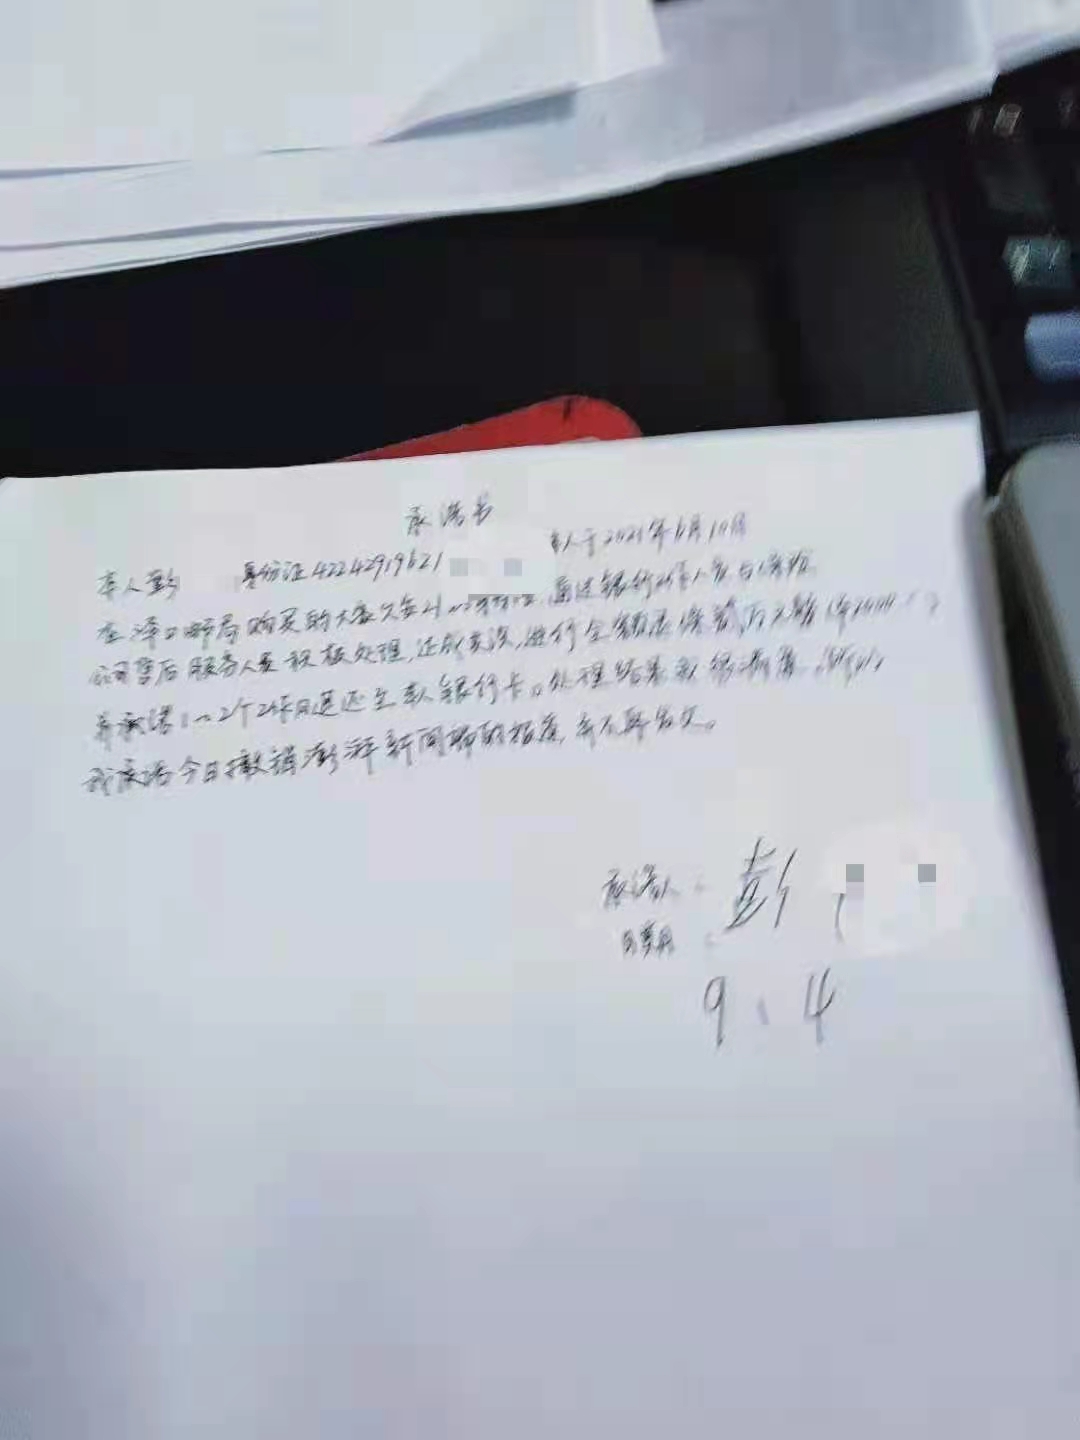 承诺书
本人彭 身份证42242919621 本人于2021年6月10日
在泽口邮局购买的大家久安 通过银行工作人员与保险
公司售后服务人员积极处理,达成共识,进行全额退保
并承诺1~2个工作日退还至彭银行卡。处理结果我很满意
我承诺今日撤销澎湃新闻网的报道,并不再发文。
承诺人:彭
日期:
9、4